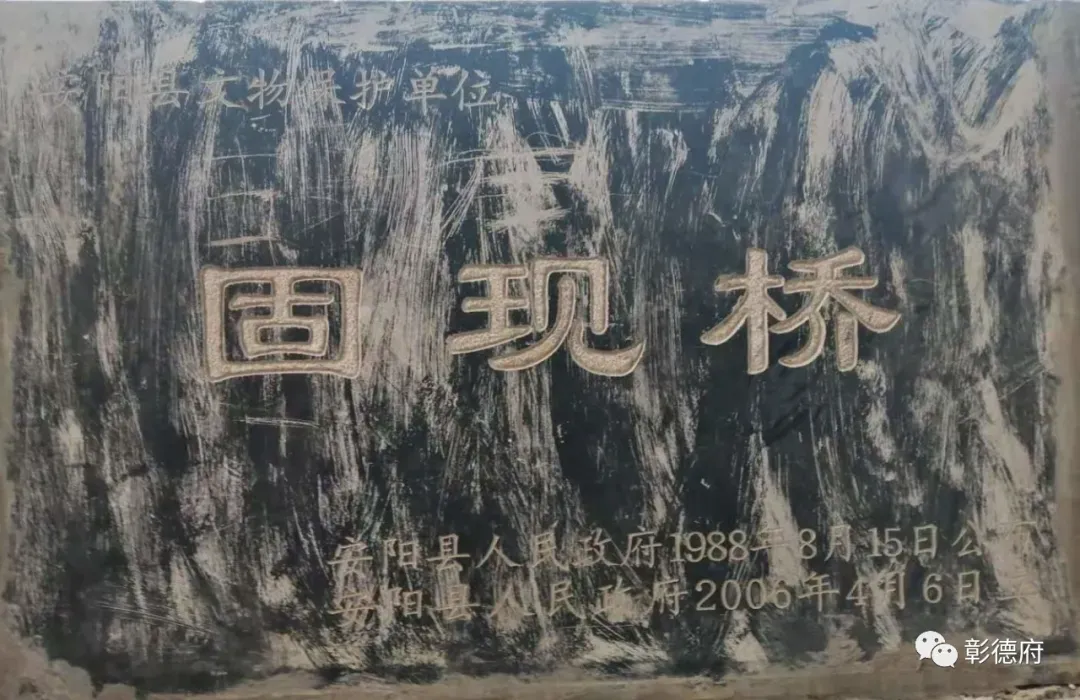 安阳县文物保护单位
固现桥
安阳县人民政府1988年8月15日公布
安阳县人民政府2006年4月6日立
彰德府